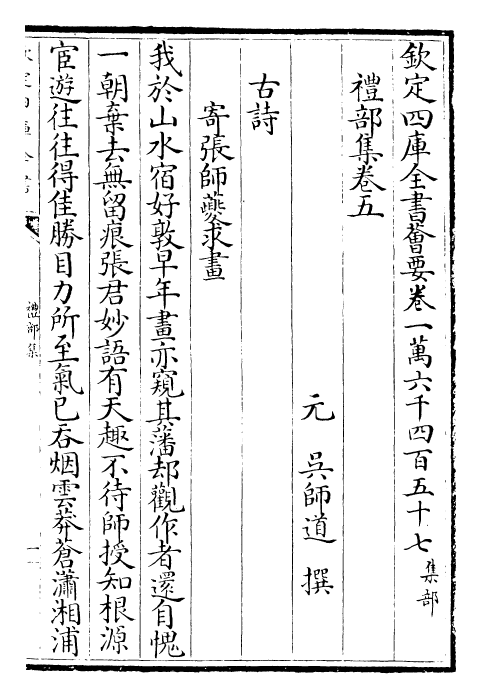 欽定四庫全書薈要卷一萬六千四百五十七 集部
禮部集卷五
元 吳師道 撰
古詩
寄張師夔求畫
我於山水宿好敦早年畫亦窺其藩却觀作者還自愧
一朝棄去無留痕張君妙語有天趣不待師授知根源
宦遊往往得佳勝目力所至氣已吞烟雲莽蒼瀟湘浦
禮部集
一